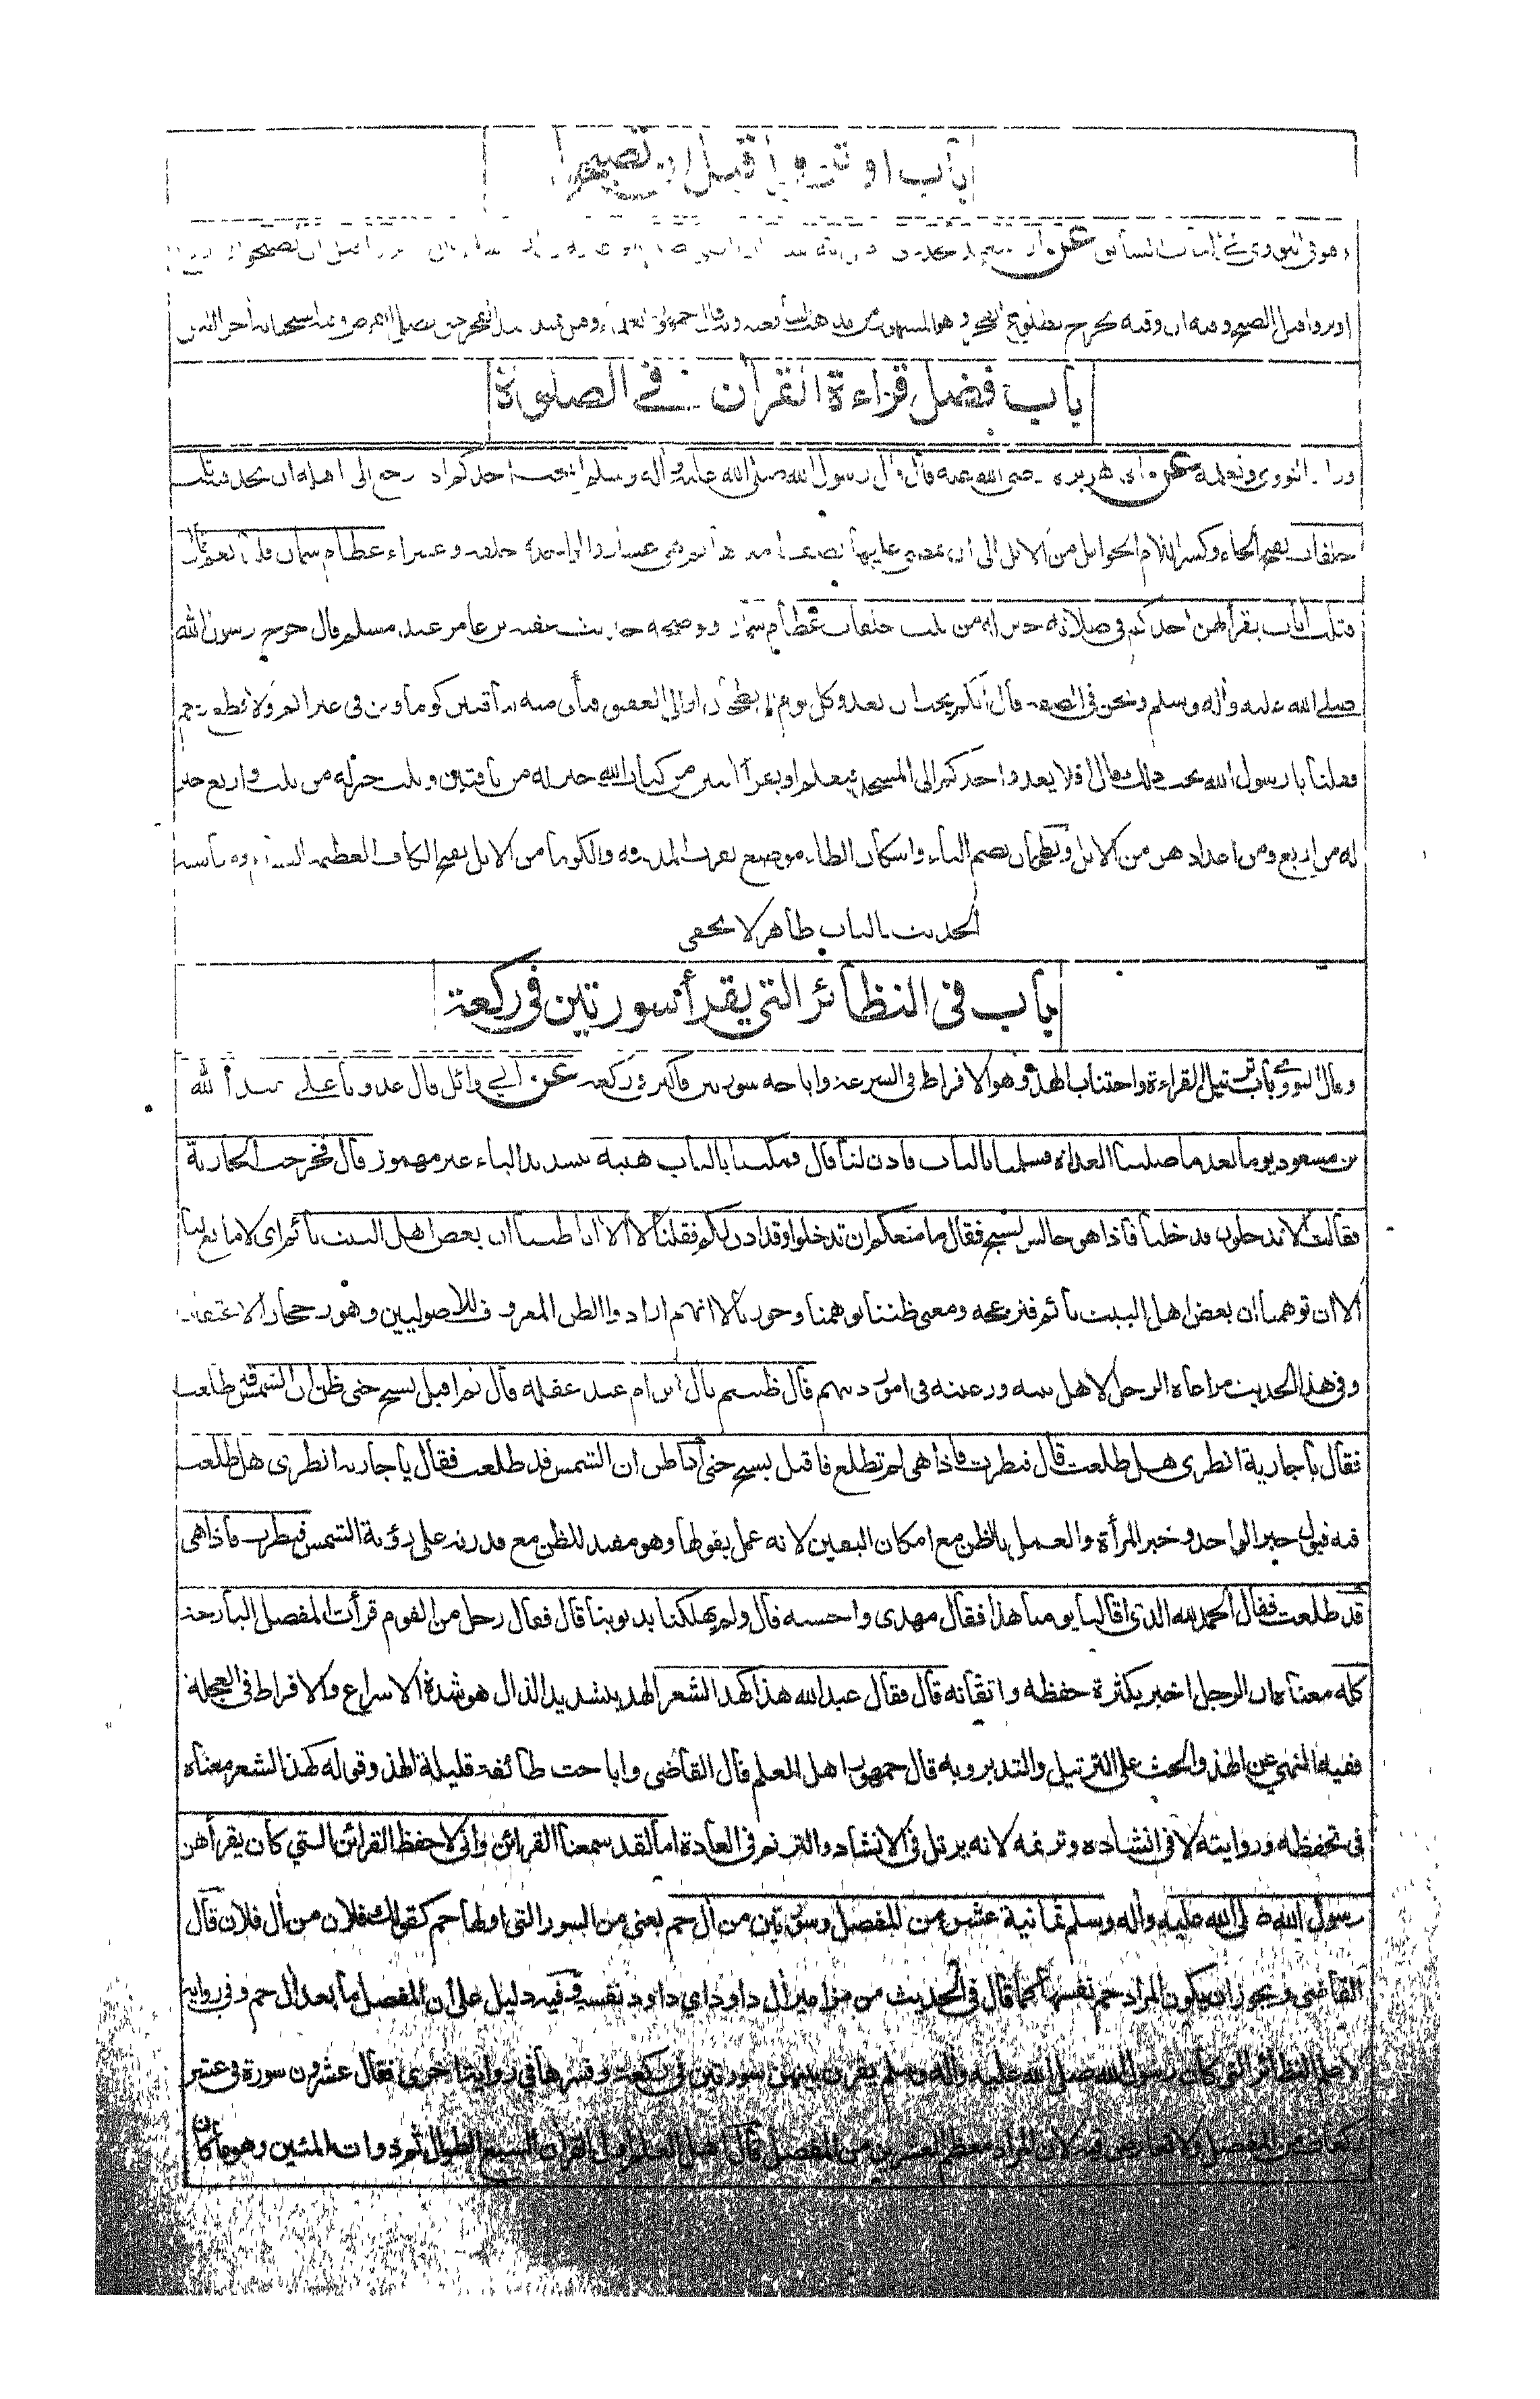 باب اوتروا قبل ان تصبحوا
وهو في النووي في الباب السابق عن ابي سعيد ان تصبحوا
اوتروا قبل الصبح وفيه ان وقته يخرج بطلوع الفجر وهو المشهور من مذهب الشافعي
باب فضل قراءة القرآن في الصلوة
النووي وتعلمه عن ابي هريرة رضي الله عنه قال قال رسول الله صلى الله عليه وآله وسلم ايحب احدكم اذا رجع الى اهله ان يجد فيه ثلث
خلفات بفتح الخاء وكسر اللام الحوامل من الابل الى ان يمضي عليها نصف امدها ثم هي عشار والواحدة خلفة وعشراء عظام سمان قلنا نعم قال
فثلث آيات يقرأ بهن احدكم في صلاته خير له من ثلث خلفات عظام سمان وحديث عقبة بن عامر عند مسلم قال خرج رسول الله
صلى الله عليه وآله وسلم ونحن في الصفة فقال ايكم يحب ان يغدو كل يوم الى بطحان او الى العقيق فيأتي منه بناقتين كوماوين في غير اثم ولا قطع رحم
فقلنا يا رسول الله نحب ذلك قال افلا يغدو احدكم الى المسجد فيعلم او يقرأ آيتين من كتاب الله خير له من ناقتين وثلث خير له من ثلث واربع خير
له من اربع ومن اعدادهن من الابل وبطحان بضم الباء واسكان الطاء موضع بقرب المدينة والكوما من الابل بفتح الكاف العظيمة السنام ومناسبة
الحديث بالباب ظاهر لا يخفى
باب في النظائر التي يقرأ سورتين في ركعة
وقال النووي باب ترتيل القراءة واجتناب الهذ وهو الافراط في السرعة واباحة سورتين فاكثر في ركعة عن ابي وائل قال غدونا على عبد الله
بن مسعود يوما بعد ما صلينا الغداة فسلمنا بالباب فاذن لنا قال فمكثنا بالباب هنية بتشديد الياء غير مهموز قال فخرجت الجارية
فقالت الا تدخلون فدخلنا فاذا هو جالس يسبح فقال ما منعكم ان تدخلوا وقد اذن لكم فقلنا لا الا انا ظننا ان بعض اهل البيت نائم اي لا مانع لنا
الا ان توهمنا ان بعض اهل البيت نائم فنزعجه ومعنى ظننا توهمنا وجوزنا لا انهم ارادوا الظن المعروف للاصوليين وهو رجحان الاعتقاد
وفي هذا الحديث مراعاة الرجل لاهل بيته ورعيته في امور دينهم قال ظننتم بآل ابن ام عبد غفلة قال ثم اقبل يسبح حتى ظن ان الشمس قد طلعت
فقال يا جارية انظري هل طلعت قال فنظرت فاذا هي لم تطلع فاقبل يسبح حتى اذا ظن ان الشمس قد طلعت فقال يا جارية انظري هل طلعت
فيه قبول خبر الواحد وخبر المرأة والعمل بالظن مع امكان اليقين لانه عمل بقولها وهو مفيد للظن مع قدرته على رؤية الشمس فنظرت فاذا هي
قد طلعت فقال الحمد لله الذي اقالنا يومنا هذا فقال مهدي واحسبه قال ولم يهلكنا بذنوبنا قال فقال رجل من القوم قرأت المفصل البارحة
كله معناه ان الرجل اخبر بكثرة حفظه واتقانه قال فقال عبد الله هذا كهذ الشعر الهذ بتشديد الذال هو شدة الاسراع والافراط في العجلة
ففيه النهي عن الهذ والحث على الترتيل والتدبر وبه قال جمهور اهل العلم قال القاضي واباحت طائفة قليلة الهذ وقوله كهذ الشعر معناه
في تحفظه وروايته لا في انشاده وترنمه لانه يرتل في الانشاد والترنم في العادة اما لقد سمعنا القرائن واني لاحفظ القرائن التي كان يقرأهن
رسول الله صلى الله عليه وآله وسلم ثمانية عشر من المفصل وسورتين من آل حم يعني من السور التي اولها حم كقولك فلان من آل فلان قال
القاضي ويجوز ان يكون المراد حم نفسها كما قال في الحديث من مزامير آل داود اي داود نفسه وفيه دليل على ان المفصل ما بعد آل حم وفي رواية
لاعلم النظائر التي كان رسول الله صلى الله عليه وآله وسلم يقرن بينهن سورتين في ركعة وفسرها في رواية اخرى فقال عشرون سورة في عشر
ركعات من المفصل ولا تعارض فيه لان المراد معظم العشرين من المفصل قال اهل العلم اول القرآن السبع الطوال ثم ذوات المئين وهو ما كان